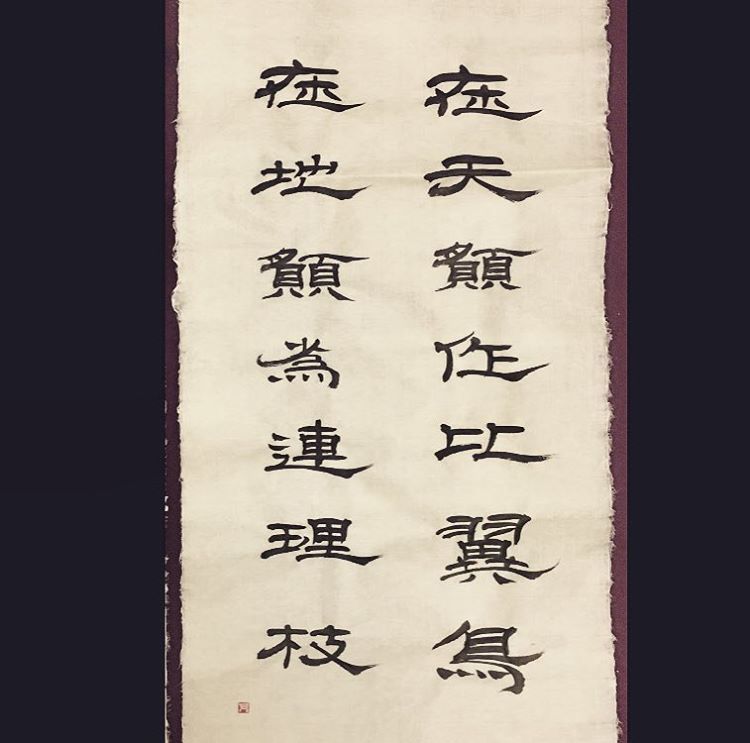 在天願作比翼鳥
在地願為連理枝